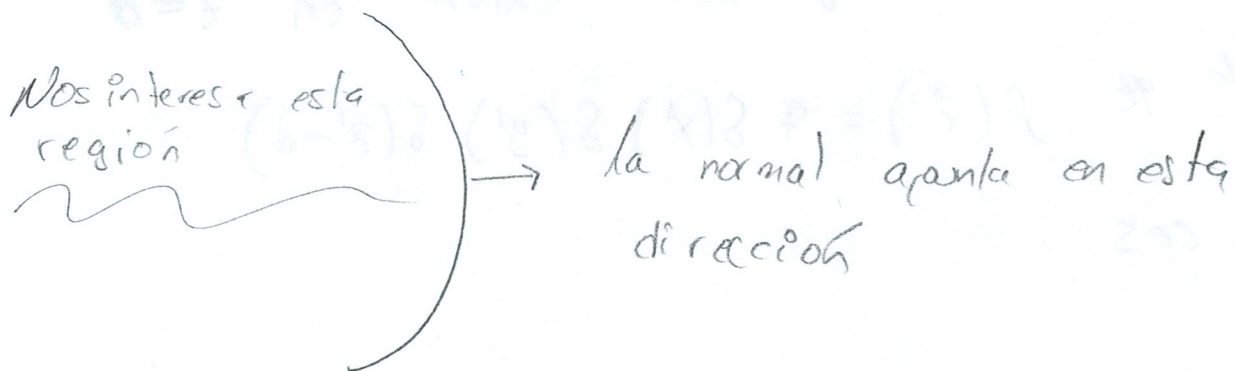 Nos interesa esta
región
la normal apunta en esta
dirección